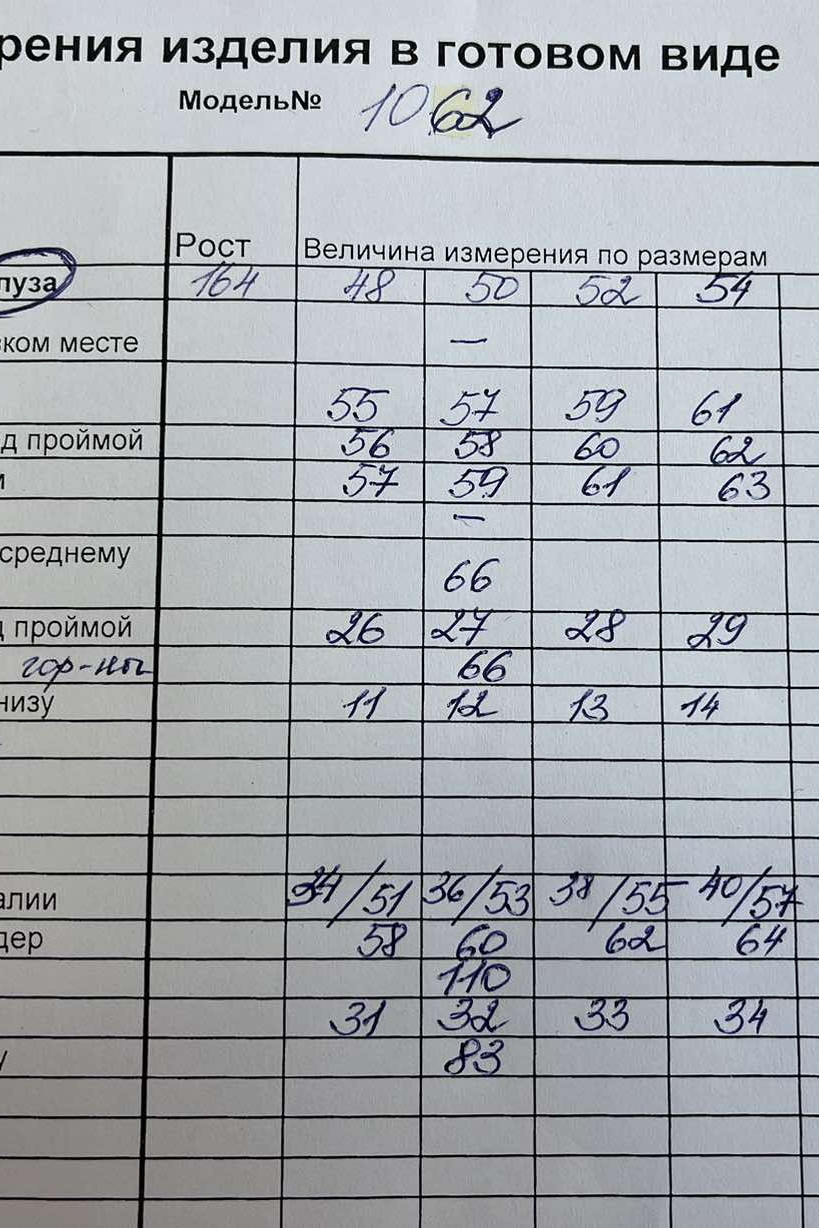 рения изделия в готовом виде
Модель№ 1062
Рост Величина измерения по размерам
луза 164 48 50 52 54
ком месте —
55 57 59 61
д проймой 56 58 60 62
и 57 59 61 63
—
среднему
66
д проймой 26 27 28 29
гор-ны 66
низу 11 12 13 14
алии 34/51 36/53 38/55 40/57
дер 58 60 62 64
110
31 32 33 34
у 83